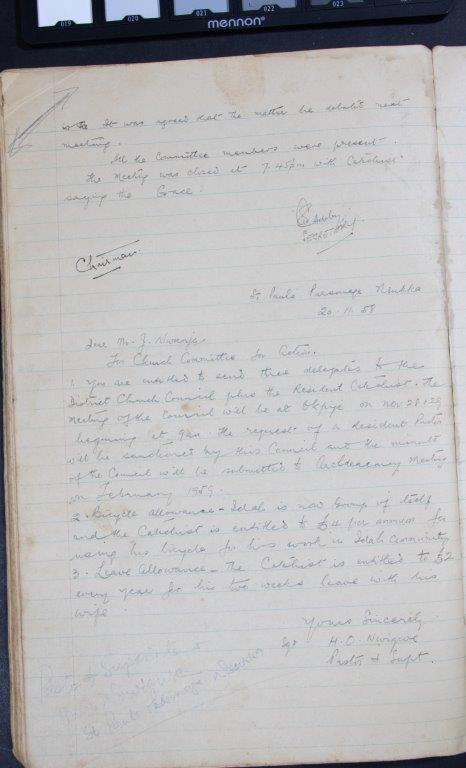 019 020 021 022 023
mennon
It was agreed that the matter be debated next
meeting.
All the Committee members were present.
The Meeting was closed at 7.45pm with Catechist
saying the Grace.
SECRETARY
Chairman.
St. Pauls Parsonage Nsukka
20.11.58
Dear Mr. J.
For Church Committee for Action.
1. You are entitled to send three delegates to the
District Church Council plus the Resident Catechist. The
Meeting of the Council will be at on Nov 28 & 29
beginning at 9am. The request of a Resident Pastor
will be sanctioned by this Council and the minute
of the Council will be submitted to Archdeaconry Meeting
on February 1959.
2. Bicycle allowance - Idah is now Group of itself
and the Catechist is entitled to £4 per annum for
using his bicycle for his work in Idah Community
3. Leave Allowance - The Catechist is entitled to £2
every year for his two weeks leave with his
wife
Yours Sincerely
Sgd H.O. Nwigwe
Pastor & Supt.
St Pauls Parsonage